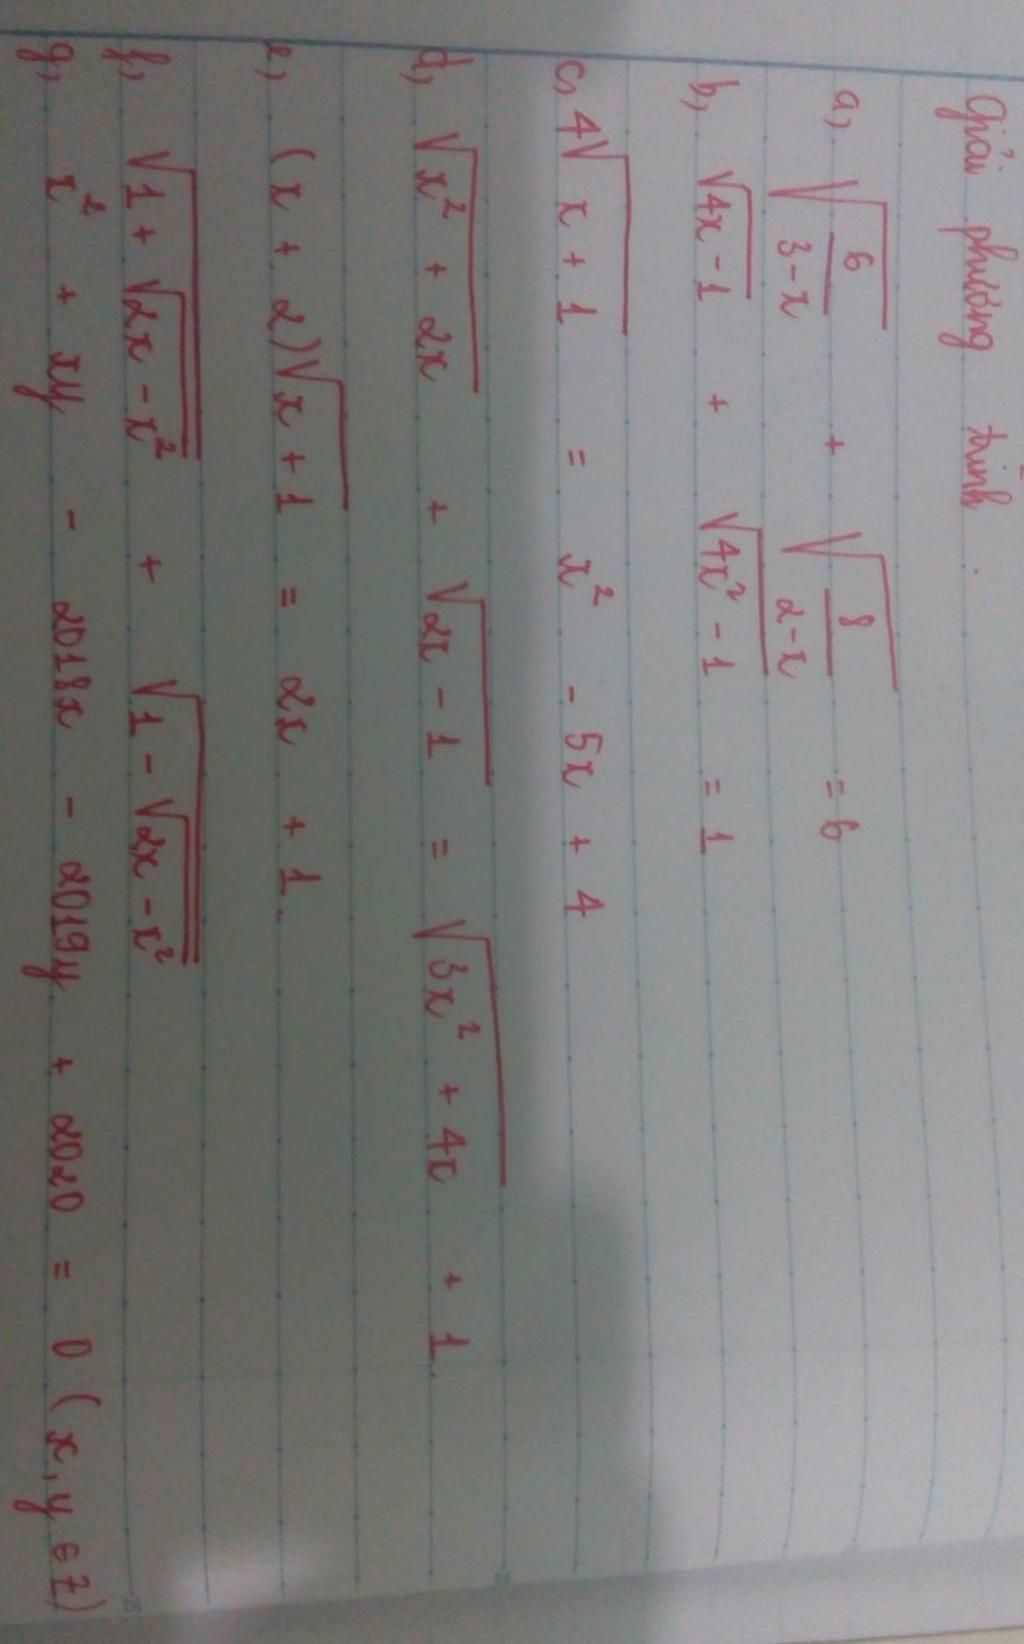 Giải phương trình.
a, √(6/(3-x)) + √(8/(2-x)) = 6
b, √(4x-1) + √(4x²-1) = 1
c, 4√(x+1) = x² - 5x + 4
d, √(x²+2x) + √(2x-1) = √(3x²+4x+1).
e, (x+2)√(x+1) = 2x + 1.
f, √(1+√(2x-x²)) + √(1-√(2x-x²))
g, x² + xy - 2018x - 2019y + 2020 = 0 (x, y ∈ Z)